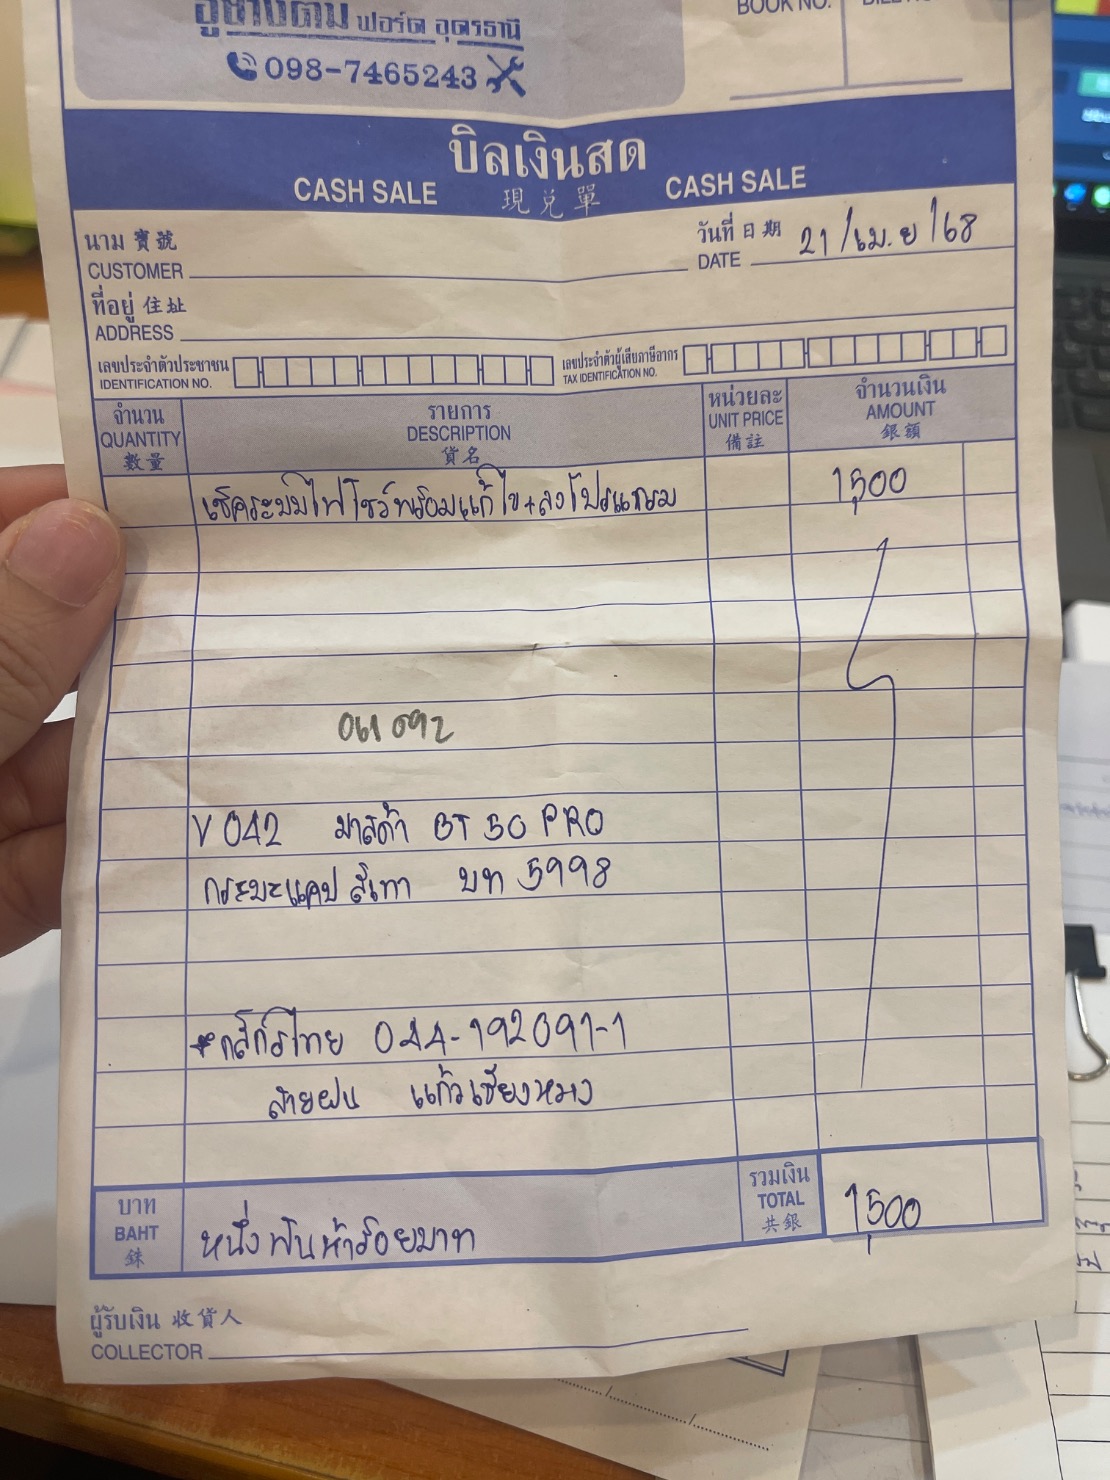 อู่ช่างตาม ฟอร์ด อุดรธานี
098-7465243
BOOK NO.
บิลเงินสด
CASH SALE 現兌單 CASH SALE
นาม 寶號
CUSTOMER
วันที่ 日期 21/เม.ย/68
DATE
ที่อยู่ 住址
ADDRESS
เลขประจำตัวประชาชน
IDENTIFICATION NO.
เลขประจำตัวผู้เสียภาษีอากร
TAX IDENTIFICATION NO.
จำนวน รายการ หน่วยละ จำนวนเงิน
QUANTITY DESCRIPTION UNIT PRICE AMOUNT
數量 貨名 備註 銀額
เช็คระบบไฟโชว์พร้อมแก้ไข+ลงโปรแกรม 1,500
061092
V042 มาสด้า BT 50 PRO
กระบะแคป สีเทา บท 5998
*กสิกรไทย 044-192091-1
สายฝน แก้วเชียงหมง
บาท หนึ่งพันห้าร้อยบาท รวมเงิน 1,500
BAHT TOTAL
銖 共銀
ผู้รับเงิน 收貨人
COLLECTOR